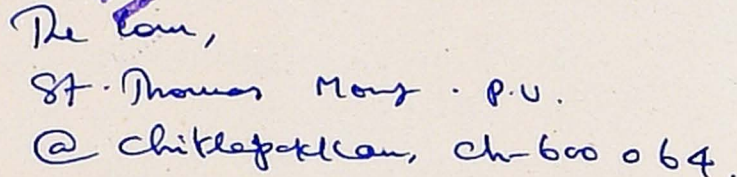 The Com,
St. Thomas Mount . P.U.
@ Chitlapakkam, Ch-600 064.